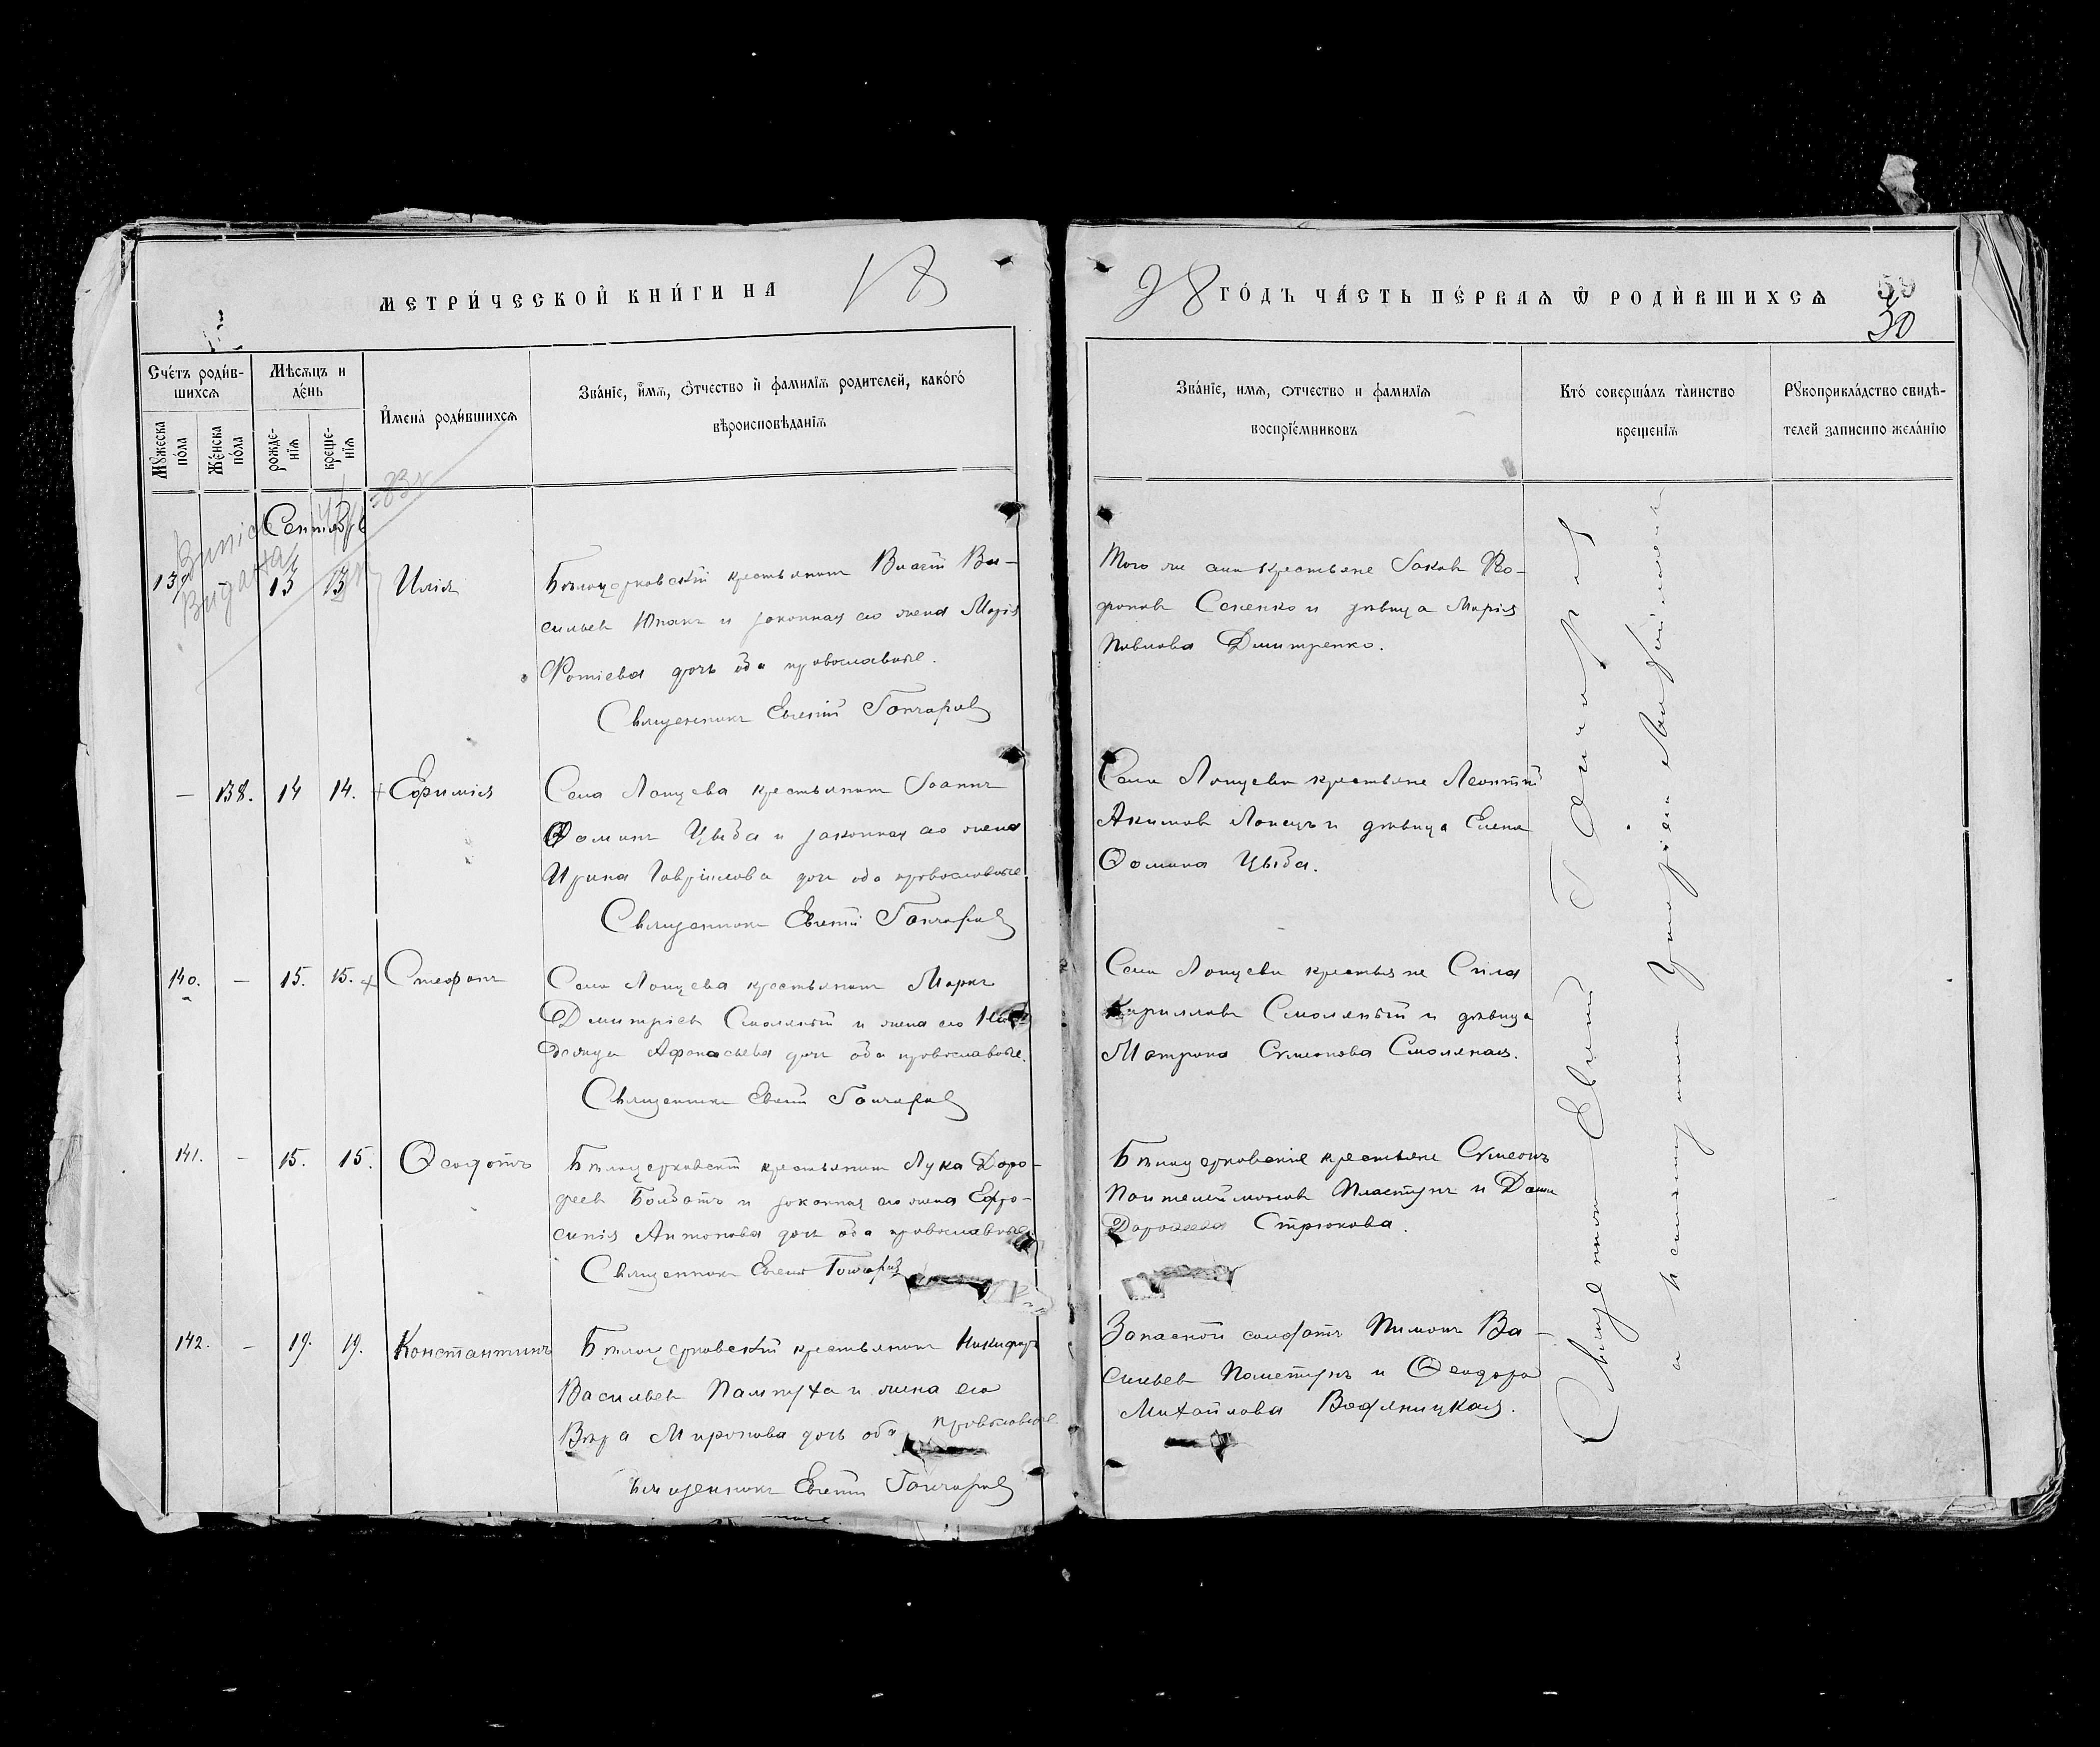 МЕТРИ́ЧЕСКОЙ КНИ́ГИ НА 18
98 ГО́ДЪ ЧА́СТЬ ПЕ́РВАѦ Ѿ РОДИ́ВШИХСѦ
59
30
Сче́тъ роди́в-
шихсѧ
Мꙋ́жеска по́ла
Же́нска по́ла
Мѣ́сѧцъ и
де́нь
рожде-
нїѧ
креще-
нїѧ
И҆мена̀ роди́вшихсѧ
Зва́нїе, и҆́мѧ, ѻ҆́тчество и҆ фамилїѧ родителей, како́гѡ
вѣроисповѣданїѧ
Зва́нїе, имѧ, ѻтчество и фамилїѧ
воспрїе́мниковъ
Кто́ соверша́лъ та́инство
креще́нїѧ
Рꙋкоприкла́дство свидѣ-
телей записи по жела́нїю
Сентябрь
13 13 Илія
Бѣлоцерковскій крестьянинъ Власій Ва-
сильевъ Юпакъ и законная его жена Марія
Фотіева дочь оба православные.
Священникъ Евгеній Гончаровъ
Того же села крестьяне Іаковъ
Сененко и дѣвица Марія
Павлова Дмитренко.
— 138. 14 14. Евфимія
Села Лонцева крестьянинъ Іоаннъ
Ѳоминъ Цыба и законная его жена
Ирина Гавріилова дочь оба православные
Священникъ Евгеній Гончаровъ
Села Лонцева крестьяне Леонтій
Акимовъ и дѣвица Елена
Ѳомина Цыба.
140. — 15. 15. Стефанъ
Села Лонцева крестьянинъ Маркъ
Дмитріевъ Смоляный и жена его
Афанасьева дочь оба православные.
Священникъ Евгеній Гончаровъ
Села Лонцева крестьяне Сила
Кирилловъ Смоляный и дѣвица
Матрона Сѵмеонова Смоляная.
141. — 15. 15. Ѳеодотъ
Бѣлоцерковскій крестьянинъ Лука Доро-
феевъ и законная его жена Ефро-
синія Антонова дочь оба православные
Священникъ Евгеній Гончаровъ
Бѣлоцерковскіе крестьяне Сѵмеонъ
Пантелеймоновъ Пластунъ и
Дорофеева Стрюкова.
142. — 19. 19. Константинъ
Бѣлоцерковскій крестьянинъ Никифоръ
Васильевъ Пампуха и жена его
Вѣра Миронова дочь оба православные
Священникъ Евгеній Гончаровъ
Запасной солдатъ Пименъ Ва-
сильевъ и Ѳеодора
Михайлова Водяницкая.
Священникъ Евгеній Гончаровъ